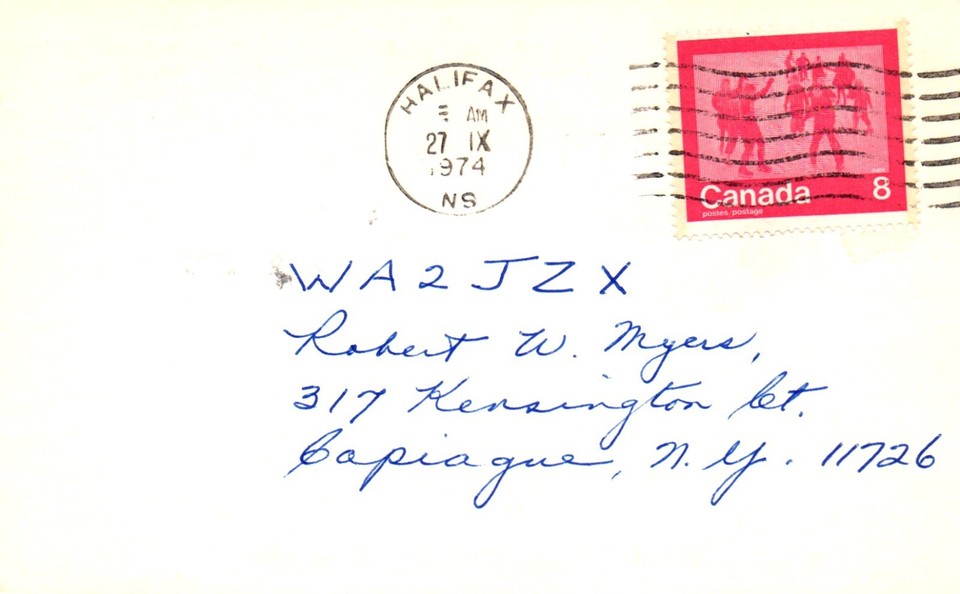 HALIFAX
AM
27 IX
1974
NS
Canada 8
postes, postage
WA2JZX
Robert W. Myers,
317 Kensington Ct.
Copiague, N.Y. 11726